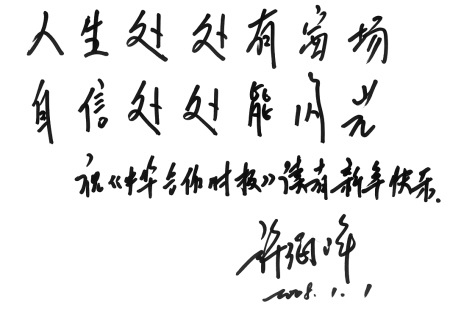 人生处处有场
自信处处能闪光
祝《中华合作时报》读者新年快乐.
许海峰
2008.1.1